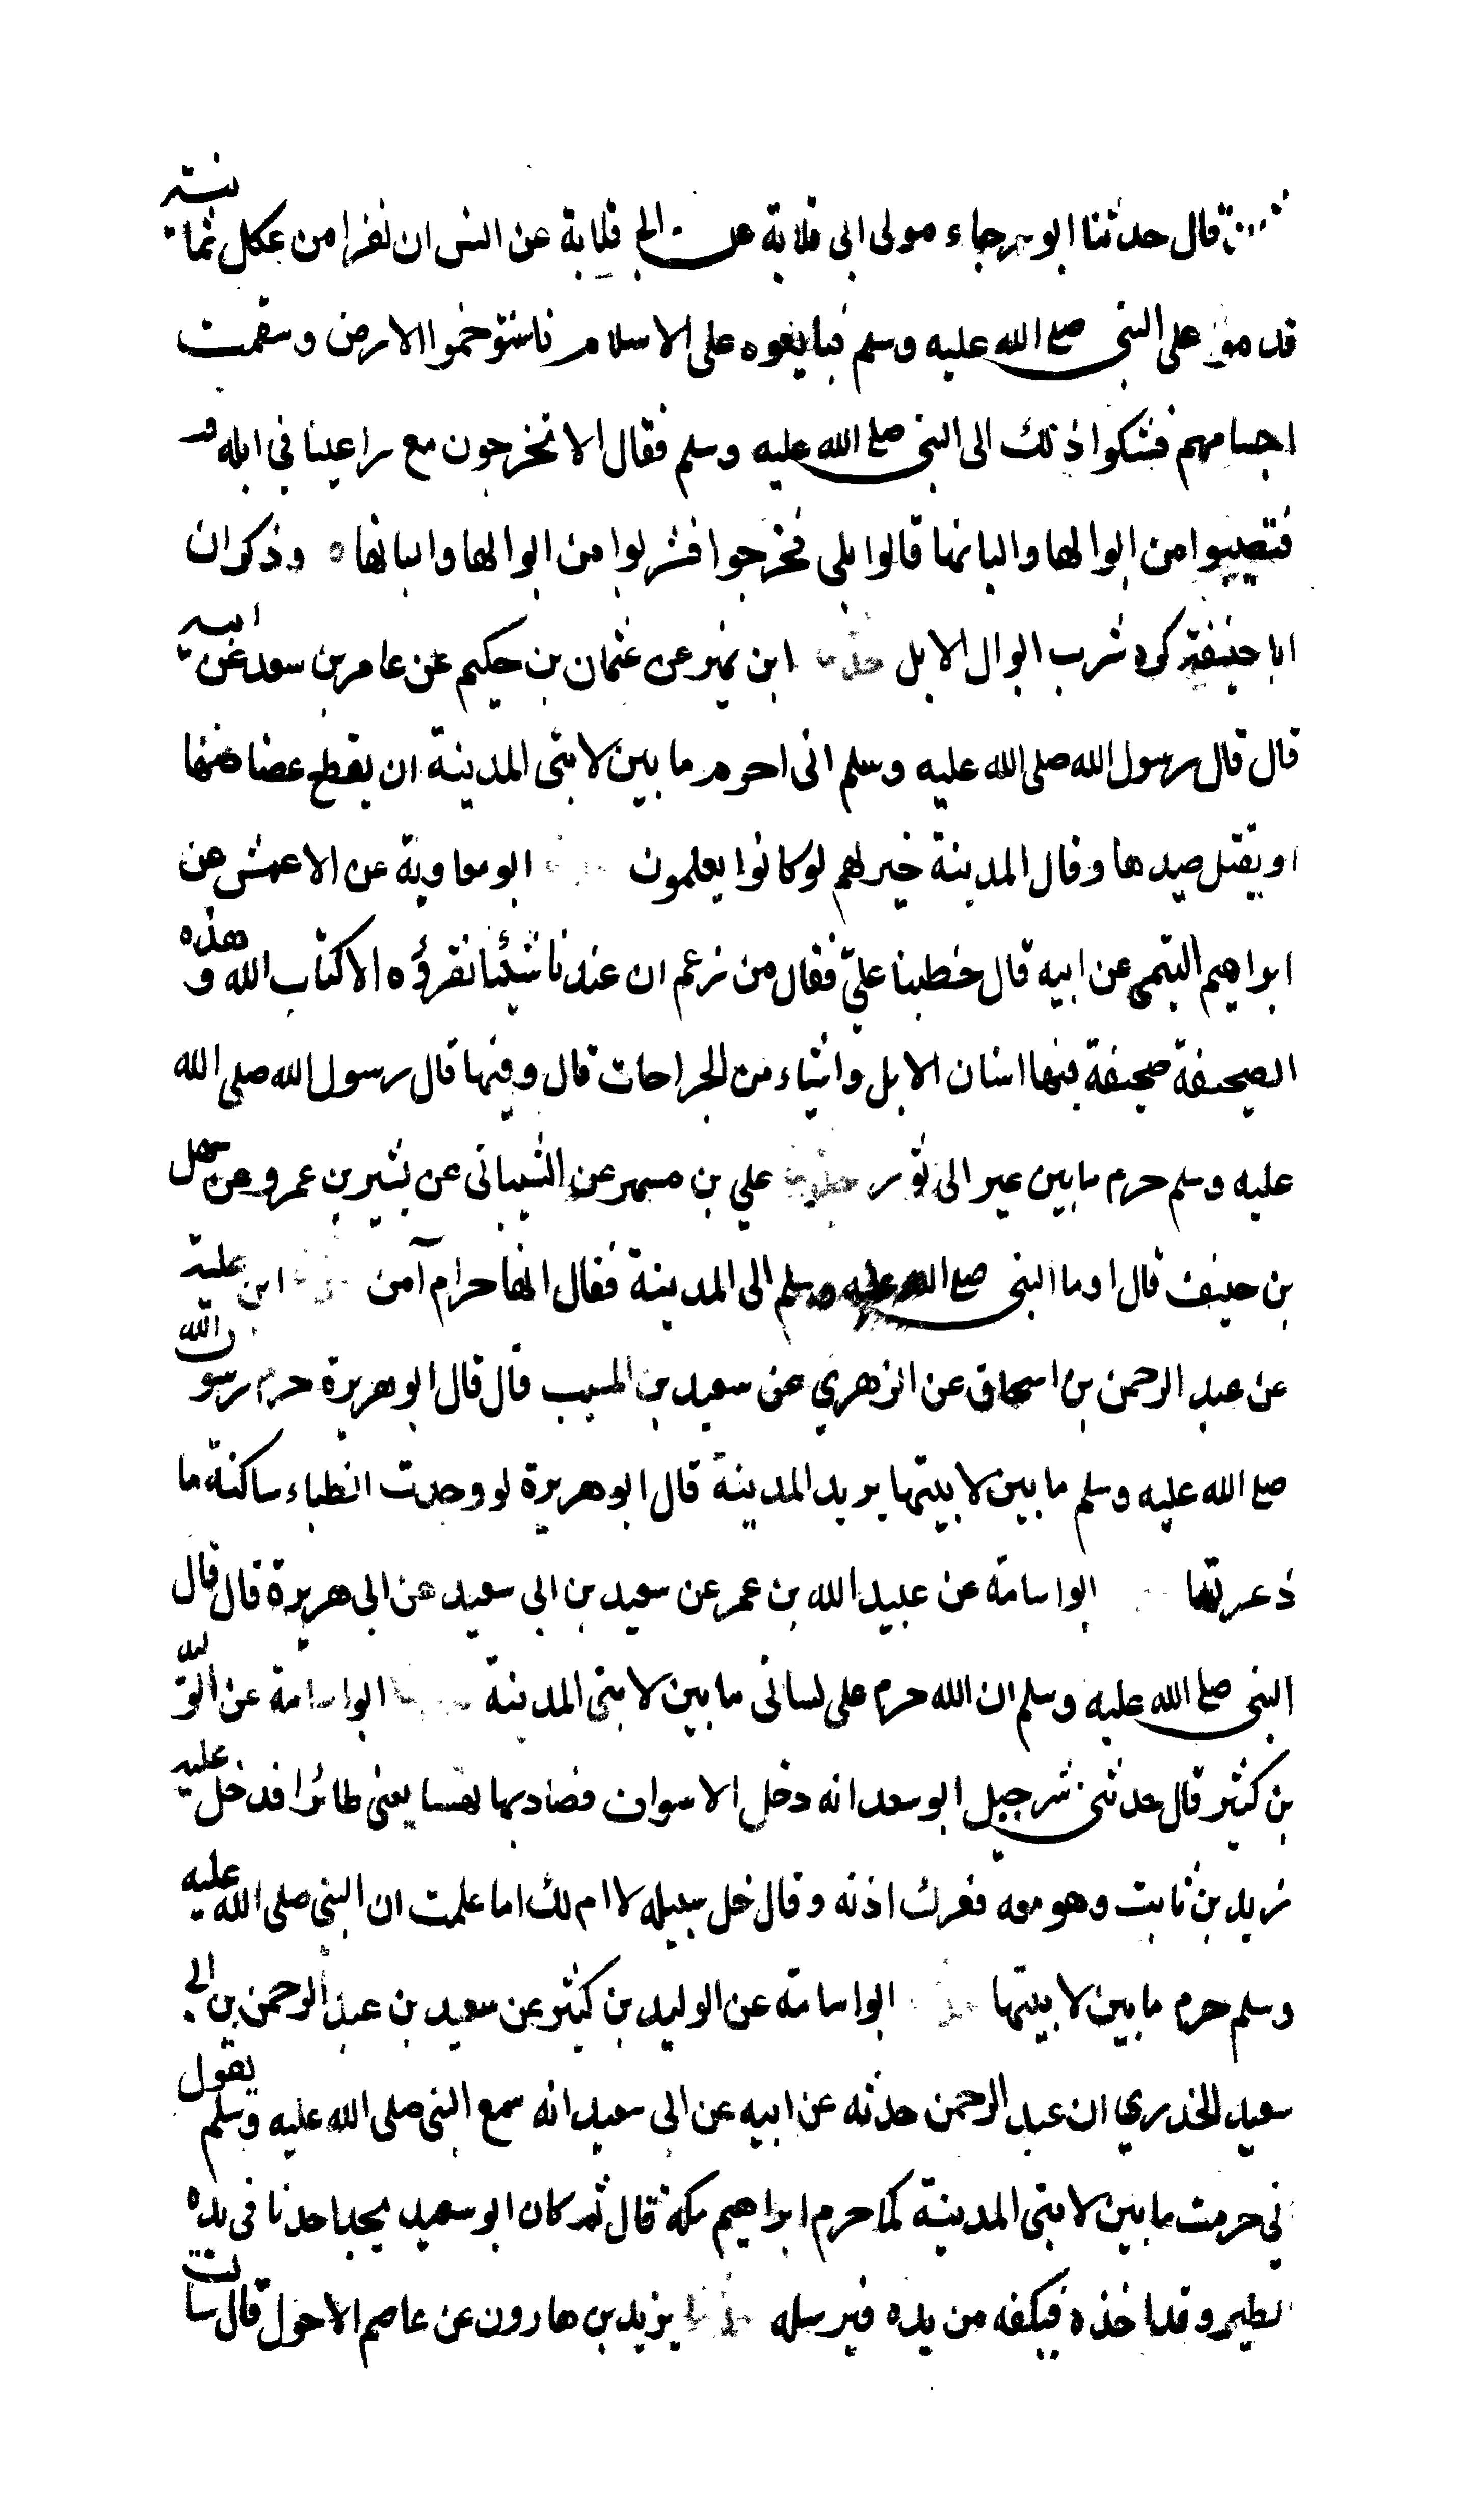 قال حدثنا ابو رجاء مولى ابى قلابة عن ابى قلابة عن انس ان نفرا من عكل ثمانية
قدموا على النبى صلع الله عليه وسلم فبايعوه على الاسلام فاستوخموا الارض وسقمت
اجسامهم فشكوا ذلك الى النبى صلع الله عليه وسلم فقال الا تخرجون مع راعينا فى ابله
فتصيبوا من ابوالها والبانها قالوا بلى فخرجوا فشربوا من ابوالها والبانها ه وذكر ان
ابا حنيفة كره شرب ابوال الابل حدثنا ابن نمير عن عثمان بن حكيم عن عامر بن سعد عن ابيه
قال قال رسول الله صلى الله عليه وسلم انى احرم ما بين لابتى المدينة ان يقطع عضاهها
او يقتل صيدها وقال المدينة خير لهم لو كانوا يعلمون ابو معاوية عن الاعمش عن
ابراهيم التيمى عن ابيه قال خطبنا علىّ فقال من زعم ان عندنا شيئا نقرؤه الا كتاب الله و هذه
الصحيفة صحيفة فيها اسنان الابل واشياء من الجراحات قال وفيها قال رسول الله صلى الله
عليه وسلم حرم ما بين عير الى ثور حدثنا علي بن مسهر عن الشيبانى عن بشير بن عمرو عن سهل
بن حنيف قال اوما النبى صلع الله عليه وسلم الى المدينة فقال انها حرام آمن ابن علية
عن عبد الرحمن بن اسحاق عن الزهري عن سعيد بن المسيب قال قال ابو هريرة حرم رسول الله
صلع الله عليه وسلم ما بين لابيتها يريد المدينة قال ابو هريرة لو وجدت الظباء ساكنة ما
ذعرتها ابو اسامة عن عبيد الله بن عمر عن سعيد بن ابى سعيد عن ابى هريرة قال قال
النبى صلع الله عليه وسلم ان الله حرم على لسانى ما بين لابتى المدينة ابو اسامة عن الوليد
بن كثير قال حدثنى شرحبيل ابو سعد انه دخل الاسواف فصاد بها نهسا يعنى طائرا فدخل عليه
زيد بن ثابت وهو معه فعرك اذنه وقال خل سبيله لا ام لك اما علمت ان النبى صلى الله عليه
وسلم حرم ما بين لابيتها ابو اسامة عن الوليد بن كثير عن سعيد بن عبد الرحمن بن ابى
سعيد الخدري ان عبد الرحمن حدثه عن ابيه عن ابى سعيد انه سمع النبى صلى الله عليه وسلم يقول
نى حرمت ما بين لابتى المدينة كما حرم ابراهيم مكة قال ثم كان ابو سعيد يجد احدنا فى يده
لطير وقد اخذه فيكفه من يده فيرسله حدثنا يزيد بن هارون عن عاصم الاحول قال سالت